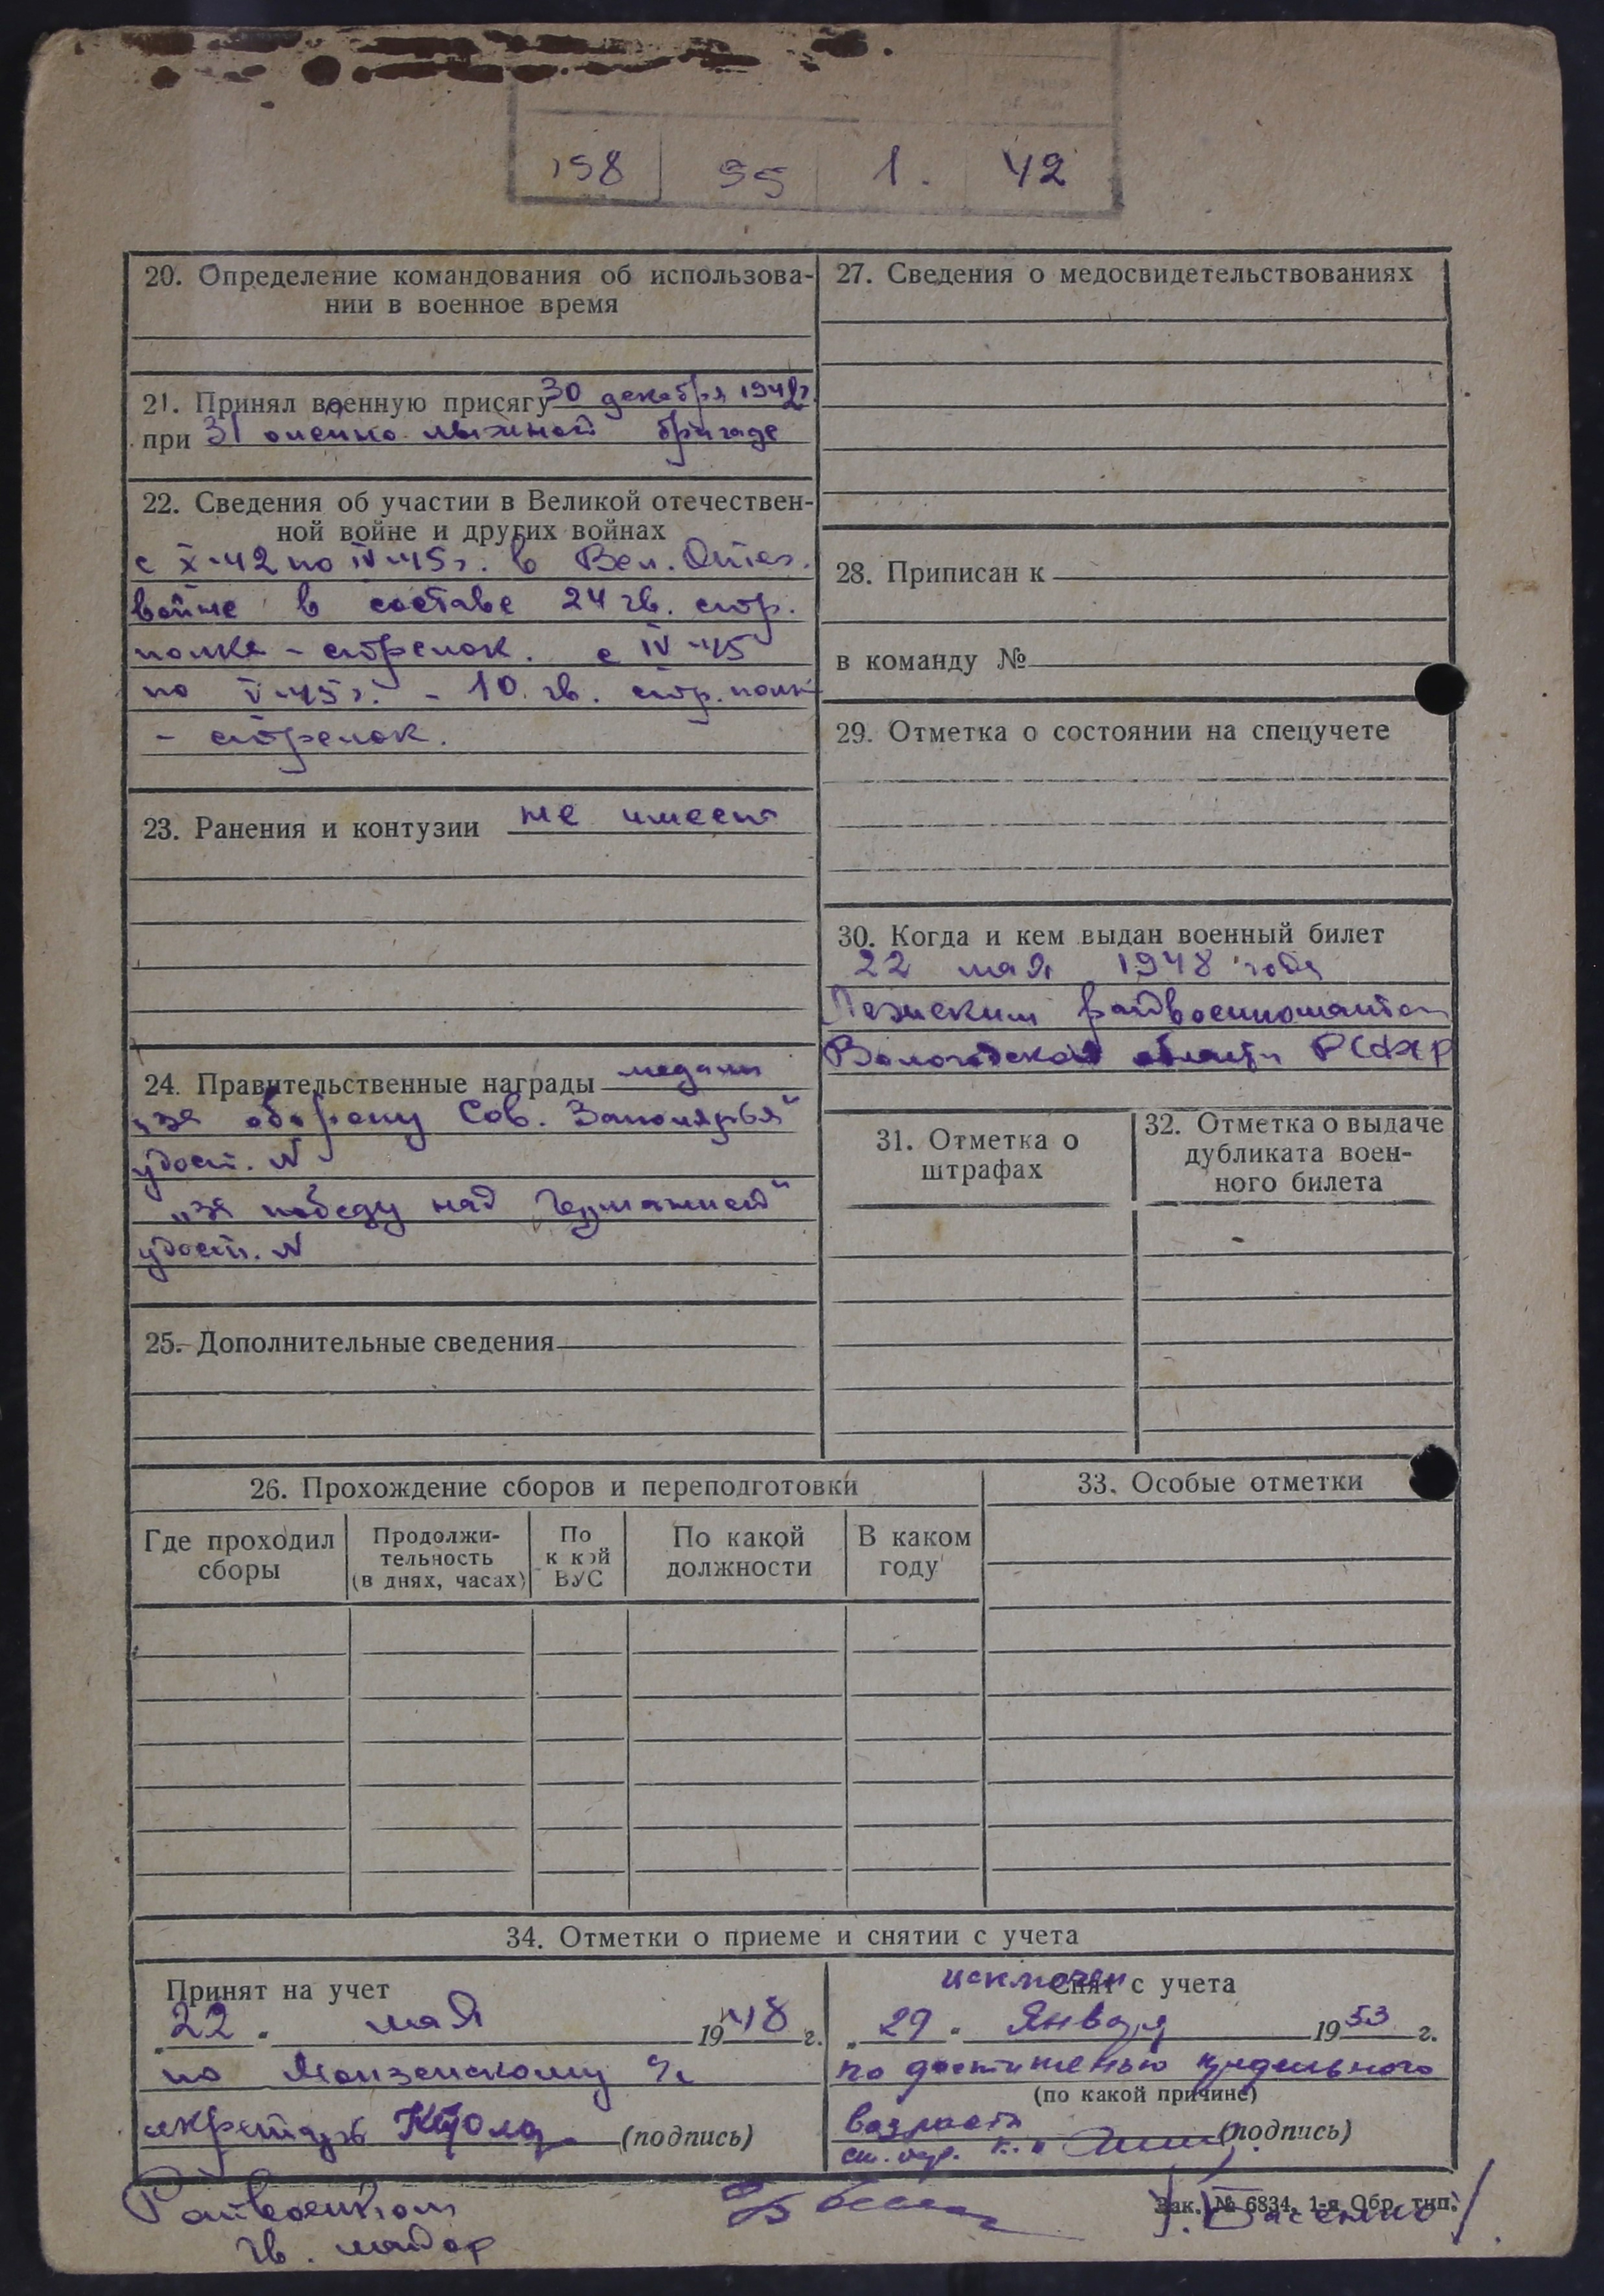 158 95 1. 42
20. Определение командования об использова-
нии в военное время
21. Принял военную присягу 30 декабря 1942г.
при 31 оленно лыжной бригаде
22. Сведения об участии в Великой отечествен-
ной войне и других войнах
с X-42 по IV-45г. в Вел. Отеч.
войне в составе 24 гв. стр.
полка - стрелок. с IV-45
по V-45г. - 10. гв. стр. полк
- стрелок.
23. Ранения и контузии не имеет
24. Правительственные награды медали
„за оборону Сов. Заполярья“
удост. N
„за победу над Германией“
удост. N
25. Дополнительные сведения
27. Сведения о медосвидетельствованиях
28. Приписан к
в команду №
29. Отметка о состоянии на спецучете
30. Когда и кем выдан военный билет
22 мая 1948 года
Лежским райвоенкоматом
Вологодской области РСФСР
31. Отметка о
штрафах
32. Отметка о выдаче
дубликата воен-
ного билета
26. Прохождение сборов и переподготовки
Где проходил
сборы
Продолжи-
тельность
(в днях, часах)
По
к кой
ВУС
По какой
должности
В каком
году
33. Особые отметки
34. Отметки о приеме и снятии с учета
Принят на учет
22 мая 1948 г.
по Монзенскому с/с
секретарь (подпись)
исключен Снят с учета
„29“ Января 1953 г.
по достижению предельного
(по какой причине)
возраста (подпись)
Райвоенком
гв. майор
Зак. № 6834, 1-я Обр. тип.